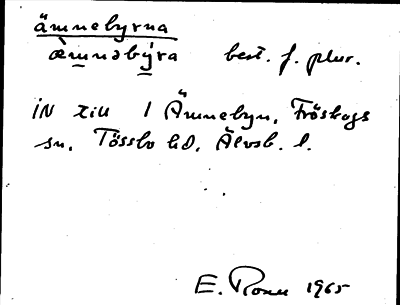 ämnebyrna
æ̀mnəbýra best. f. plur.
IN till 1 Ämnebyn, Fröskogs
sn, Tössbo hd, Älvsb. l.
E. 1965